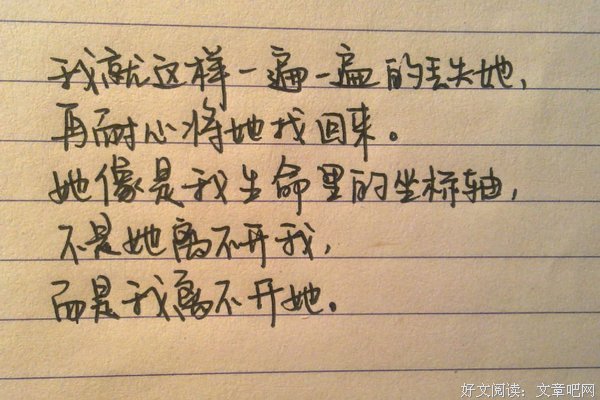 我就这样一遍一遍的丢失她，
再耐心将她找回来。
她像是我生命里的坐标轴，
不是她离不开我，
而是我离不开她。
好文阅读：文章吧网